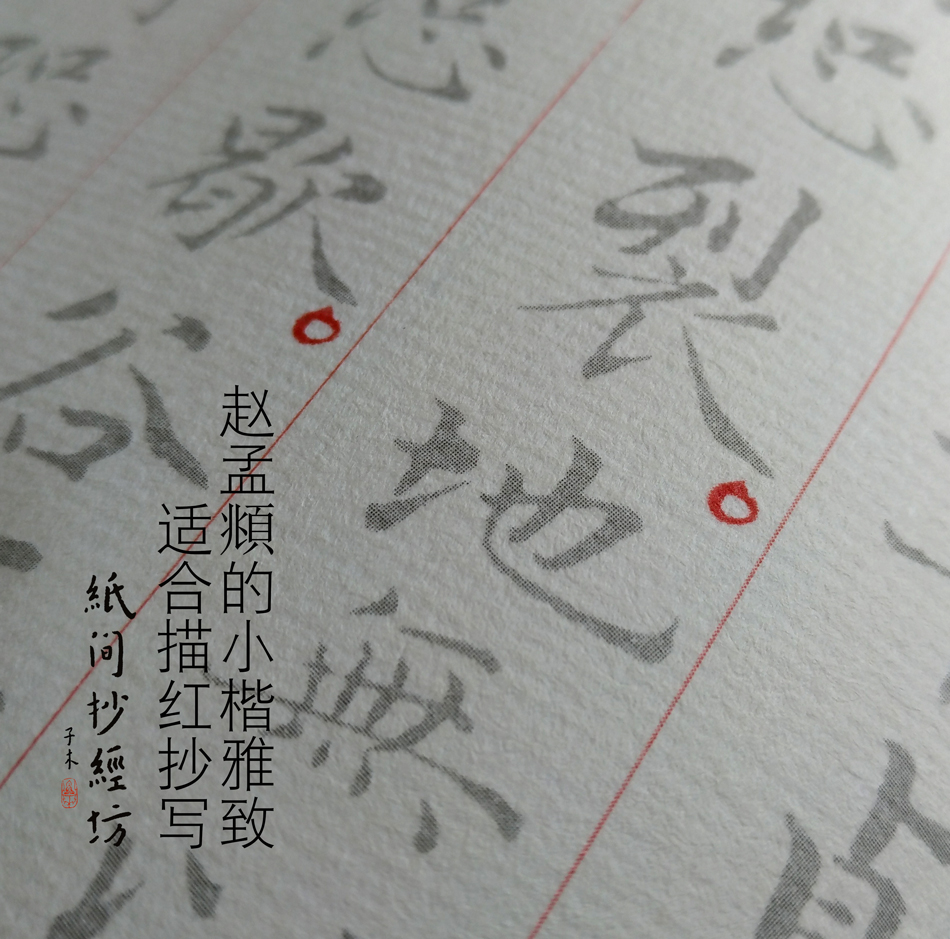 恐裂。地無
恐歇。谷
恐
赵孟頫的小楷雅致
适合描红抄写
紙间抄經坊
子木